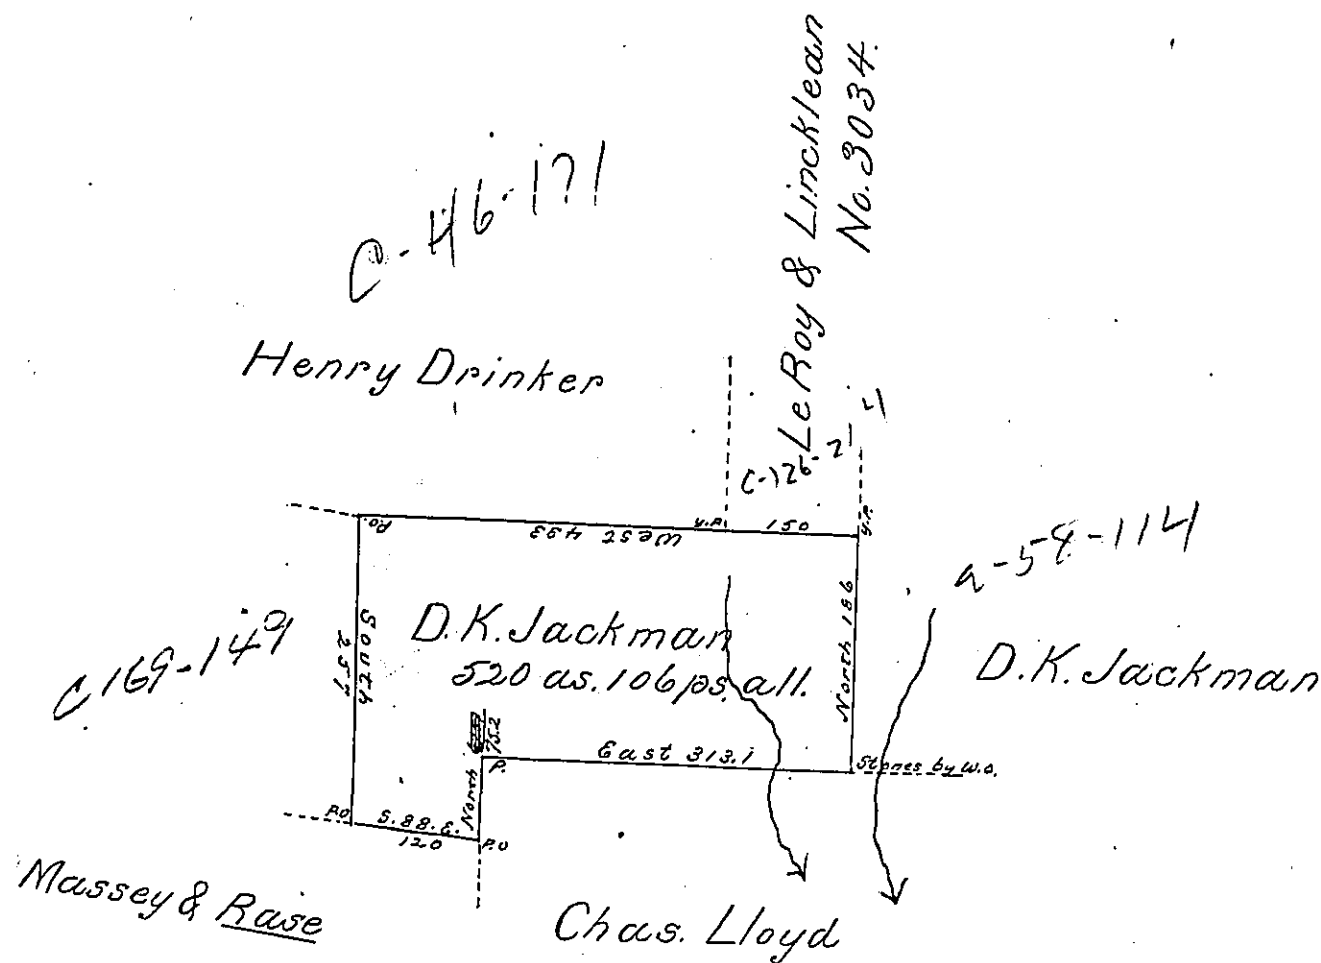 LeRoy & Lincklean
No. 3034.
C-46-171
Henry Drinker
C-126-21
P.O.
West 433
Y.P.
150
Y.P.
a-58-114
C169-149
South
257
D.K. Jackman
520 as. 106 ps. all.
North 186
D.K. Jackman
75.2
North
P.
East 313.1
Stones by W.O.
P.O
S. 88. E.
120
P.O
Massey & Rase
Chas. Lloyd